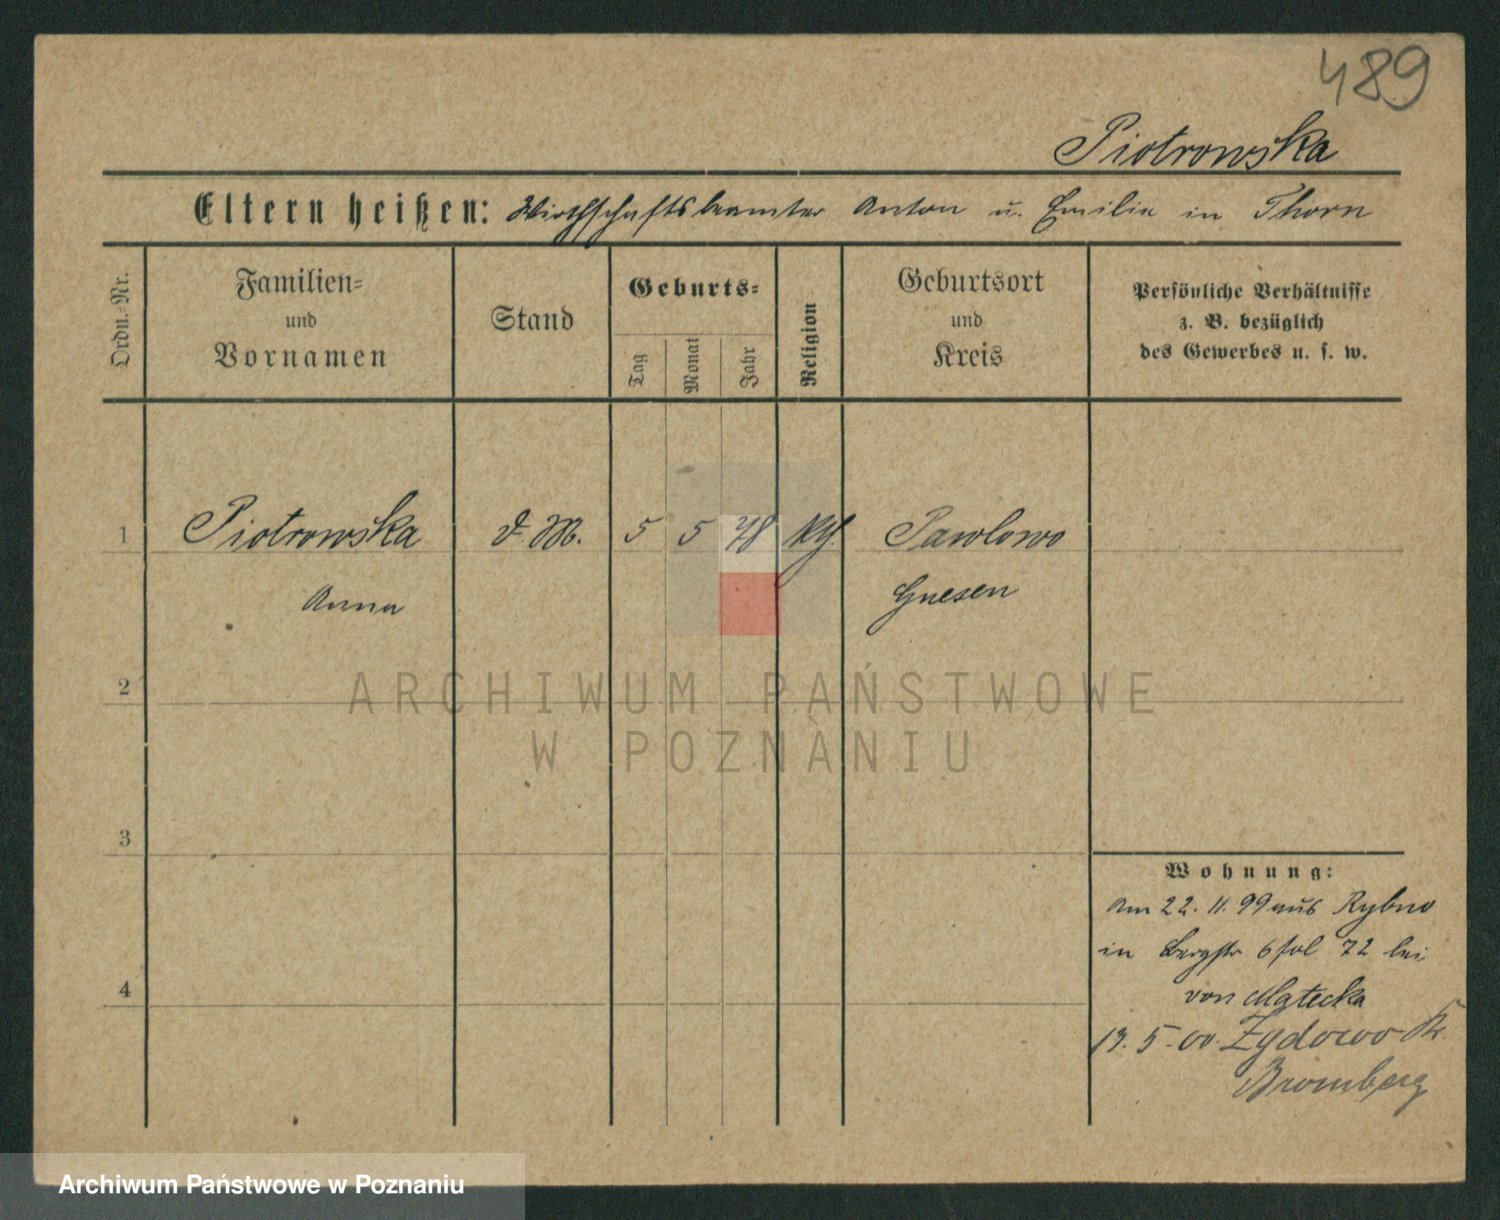 489
Piotrowska
Eltern heißen: Wirthschaftsbeamter Anton u. Emilie in Thorn
Ordn.-Nr.
Familien-
und
Vornamen
Stand
Geburts-
Tag
Monat
Jahr
Religion
Geburtsort
und
Kreis
Persönliche Verhältnisse
z. B. bezüglich
des Gewerbes u. s. w.
1 Piotrowska d. M. 5 5 78 Kth. Pawlowo
Anna Gnesen
2
ARCHIWUM PAŃSTWOWE
W POZNANIU
3
Wohnung:
Am 22. 11. 99 aus Rybno
in Bergstr 6 fol 72 bei
4
von Matecka
13. 5. 00. Zydowo Kr.
Bromberg
Archiwum Państwowe w Poznaniu